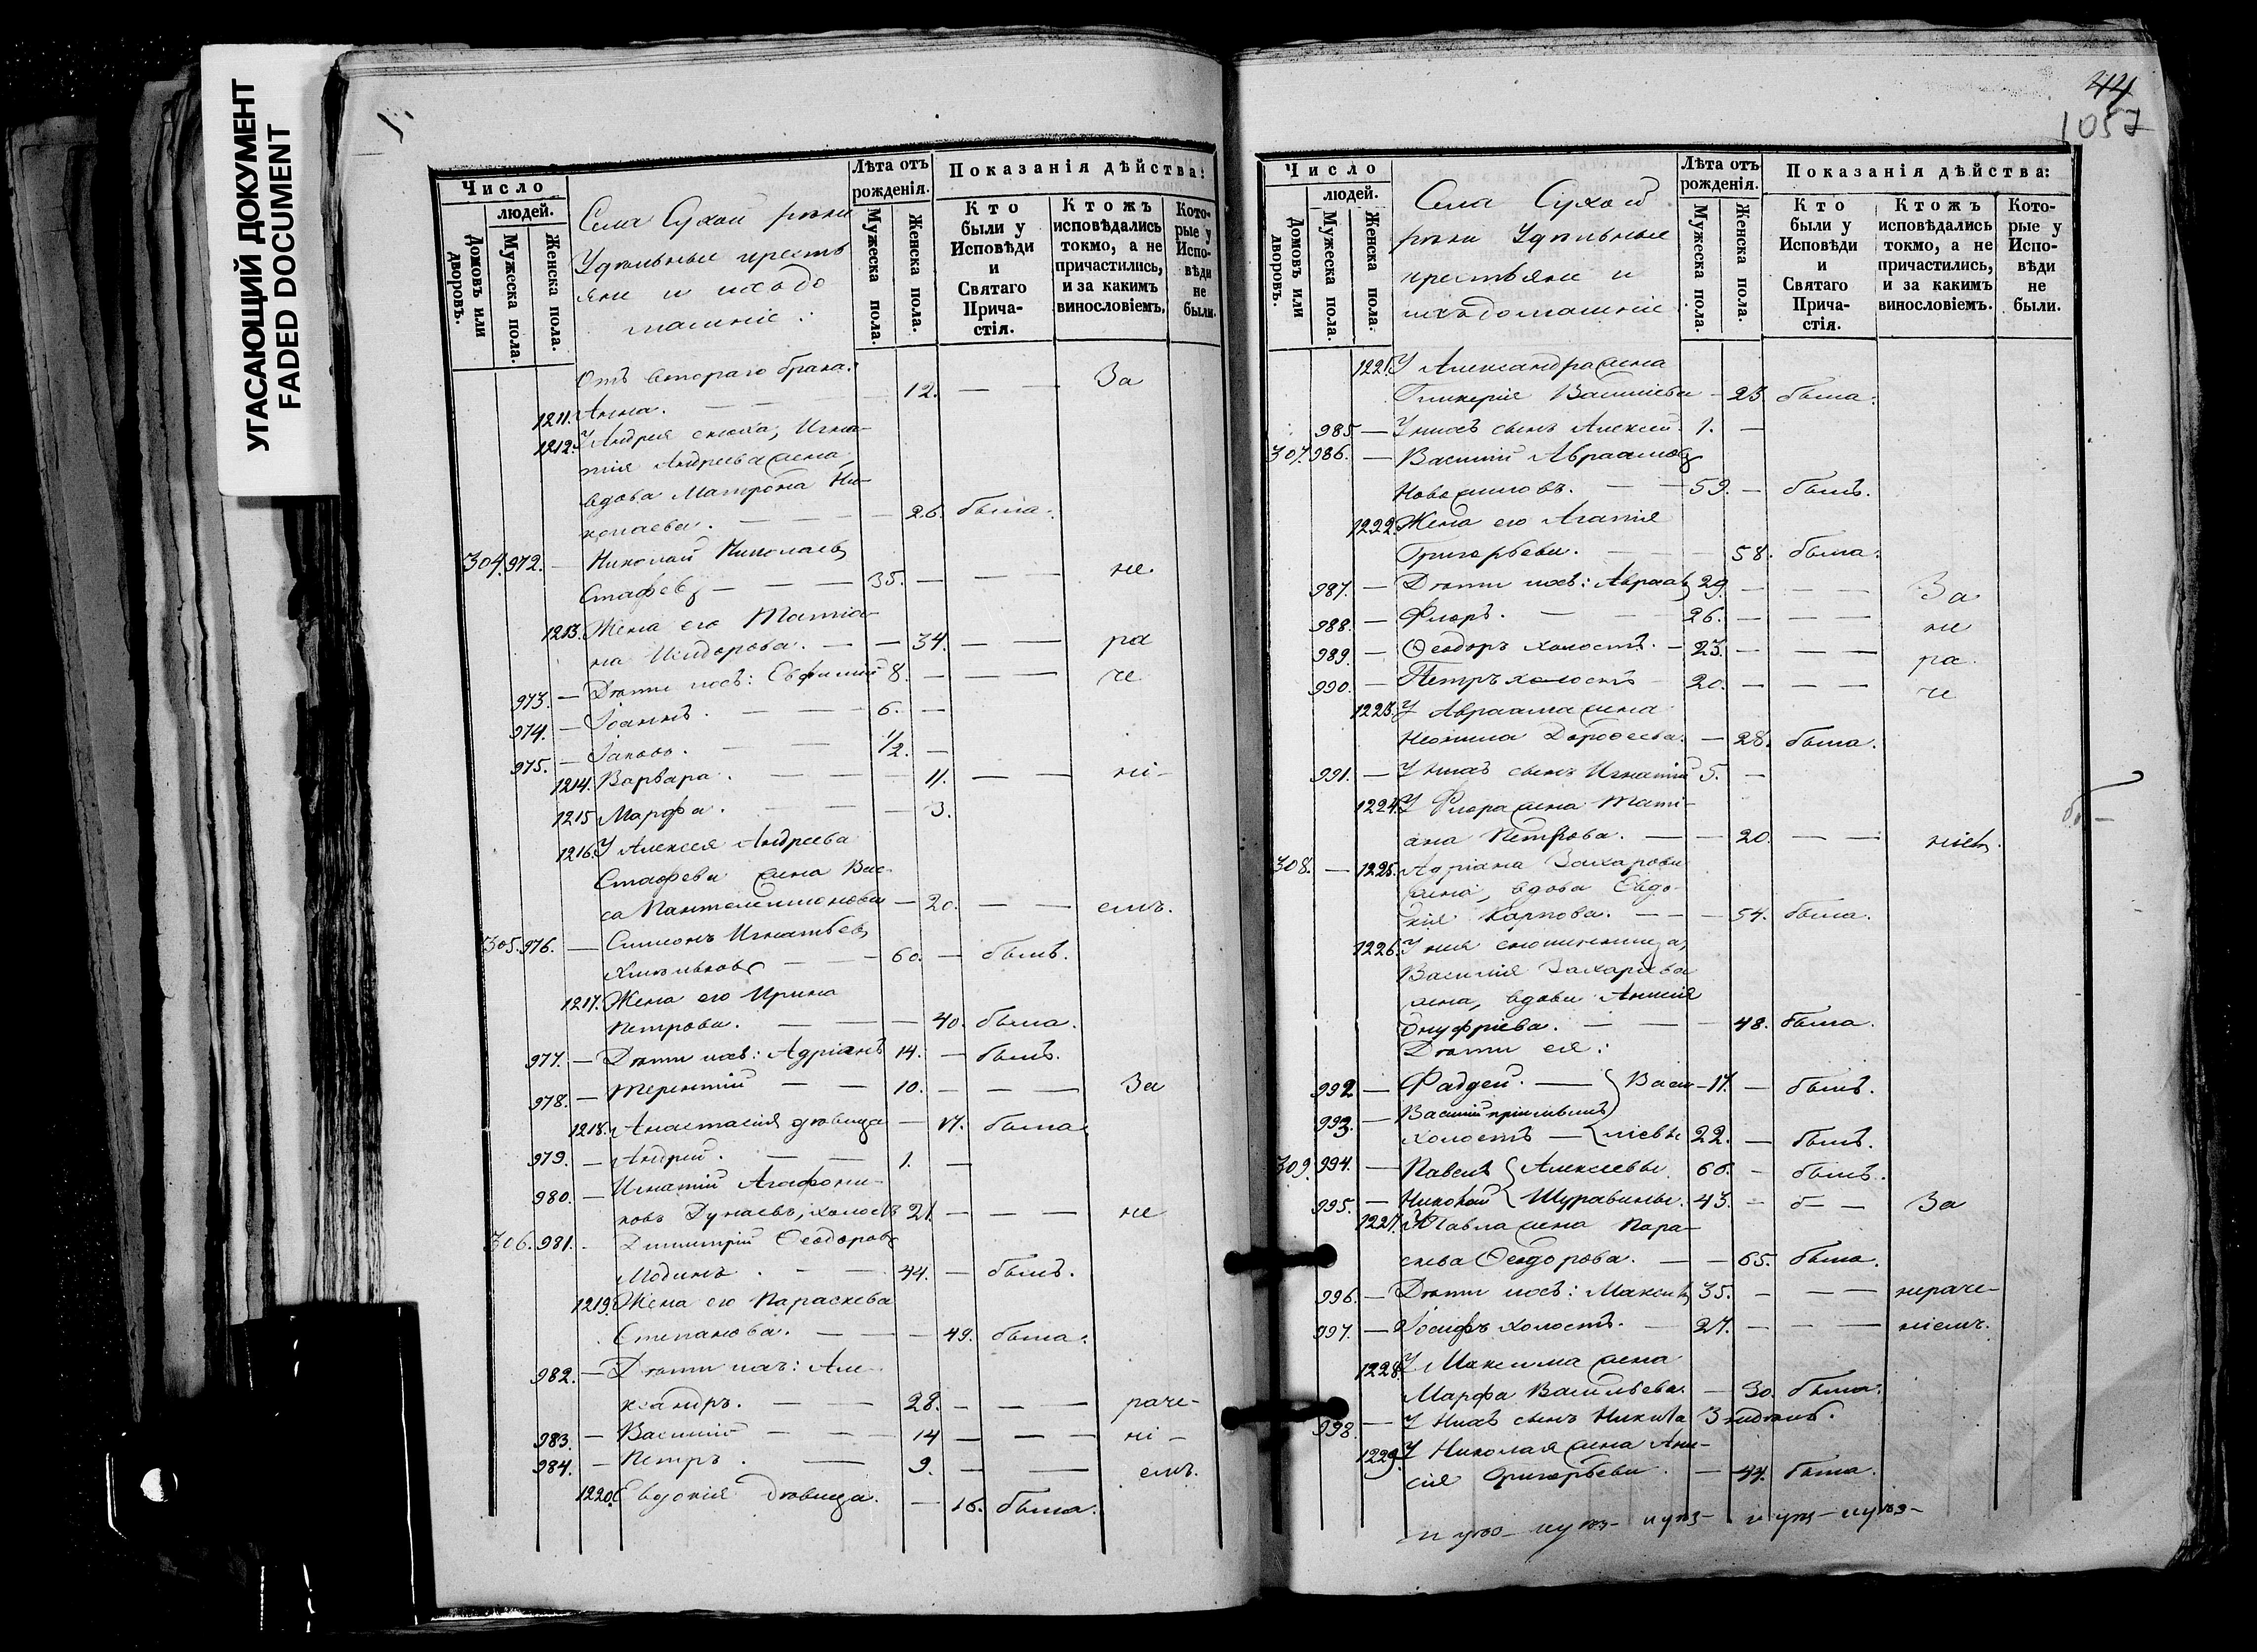 УГАСАЮЩИЙ ДОКУМЕНТ
FADED DOCUMENT
Число
людей.
Домовъ или дворовъ.
Мужеска пола.
Женска пола.
Села Сухой рѣки
Удѣльные кресть
яне и ихъ до
машніе:
Лѣта отъ рожденія.
Мужеска пола.
Женска пола.
Показанія дѣйства:
Кто были у Исповѣди и Святаго Прича-стія.
Ктожъ исповѣдались токмо, а не причастились, и за какимъ винословіемъ.
Кото-рые у Испо-вѣди не были.
Отъ втораго брака:
1211. Анна. — 12. — — За
1212. У Андрея сноха, Игна-
тія Андреева жена,
вдова Матрона Ни-
колаева. — 26. была.
304. 972. — Николай Николаевъ
Стафеевъ — 35. — — не
1213. Жена его Татіа-
на Исидорова. — 34. — — ра
973. — Дѣти ихъ: Евфимій 8. — — че
974. — Іоаннъ. — 6. —
975. — Іаковъ. — 1/2. —
1214. Варвара. — 11. — — ні-
1215 Марфа. — 3.
1216. У Алексея Андреева
Стафеева жена Вас-
са Пантелеимонова — 20. — — емъ.
305. 976. — Симеонъ Игнатьевъ
— 60. — былъ.
1217. Жена его Ирина
Петрова. — 40. была.
977. — Дѣти ихъ: Адріанъ 14. — былъ.
978. — Терентій — 10. — — За
1218. Анастасія дѣвица — 17. была.
979. — Андрей. — 1. —
980. — Игнатій Агафони-
ковъ Дунаевъ, холостъ 21. — — не
306. 981. — Димитрій Ѳеодоровъ
Модинъ. — 44. — былъ.
1219. Жена его Параскева
Степанова. — 49. была.
982. — Дѣти ихъ: Але-
ксандръ. — 28. — — раче-
983. — Василій — 14 — — ні-
984. — Петръ. — 9. — — емъ.
1220. Евдокія дѣвица. — 16. была.
44
1057
Число
людей.
Домовъ или дворовъ.
Мужеска пола.
Женска пола.
Села Сухой
рѣки Удѣльные
крестьяне и
ихъ домашніе
Лѣта отъ рожденія.
Мужеска пола.
Женска пола.
Показанія дѣйства:
Кто были у Исповѣди и Святаго Прича-стія.
Ктожъ исповѣдались токмо, а не причастились, и за какимъ винословіемъ.
Кото-рые у Испо-вѣди не были.
1221. У Александра жена
Гликерія Василіева — 23 была.
985. — У нихъ сынъ Алексей. 1. —
307. 986. — Василій Авраамовъ
Новожиловъ. — 59. — былъ.
1222. Жена его Агапія
Григорьева. — 58. была.
987. — Дѣти ихъ: Авраамъ 29. — — За
988. — Флоръ. — 26. — — не
989. — Ѳеодоръ холостъ. — 23. — — ра
990. — Петръ холостъ 20. — — че
1223. У Авраама жена
Неонила Дороѳеева. — 28. была.
991. — У нихъ сынъ Игнатій 5. —
1224. У Флора жена Тати-
ана Петрова. — 20. — — ніемъ.
308. — 1225. Адріана Захарова
жена, вдова Евдо-
кія Карпова. — 54. была.
1226. У нея сношенница,
Василія Захарьева
жена, вдова Анисія
Онуфріева. — 48. была.
Дѣти ея:
992 — Фаддей. — } Васи- 17. — былъ.
993. — Василій
холостъ — } ліевы 22. — былъ.
309. 994. — Павелъ { Алексіевы 66. — былъ.
995. — Николай { Шуравины. 43. — б— — За
1227. У Павла жена Пара-
скева Ѳеодорова. — 65. была.
996. — Дѣти ихъ: Максимъ 35. — — нераче-
997. — Іосифъ холостъ. — 27. — — ніемъ.
1228. У Максима жена
Марфа Васильева. — 30. была.
998. — У нихъ сынъ Никита 3 недѣль.
1229. У Николая жена Ани-
сія Григорьева. — 44. была.